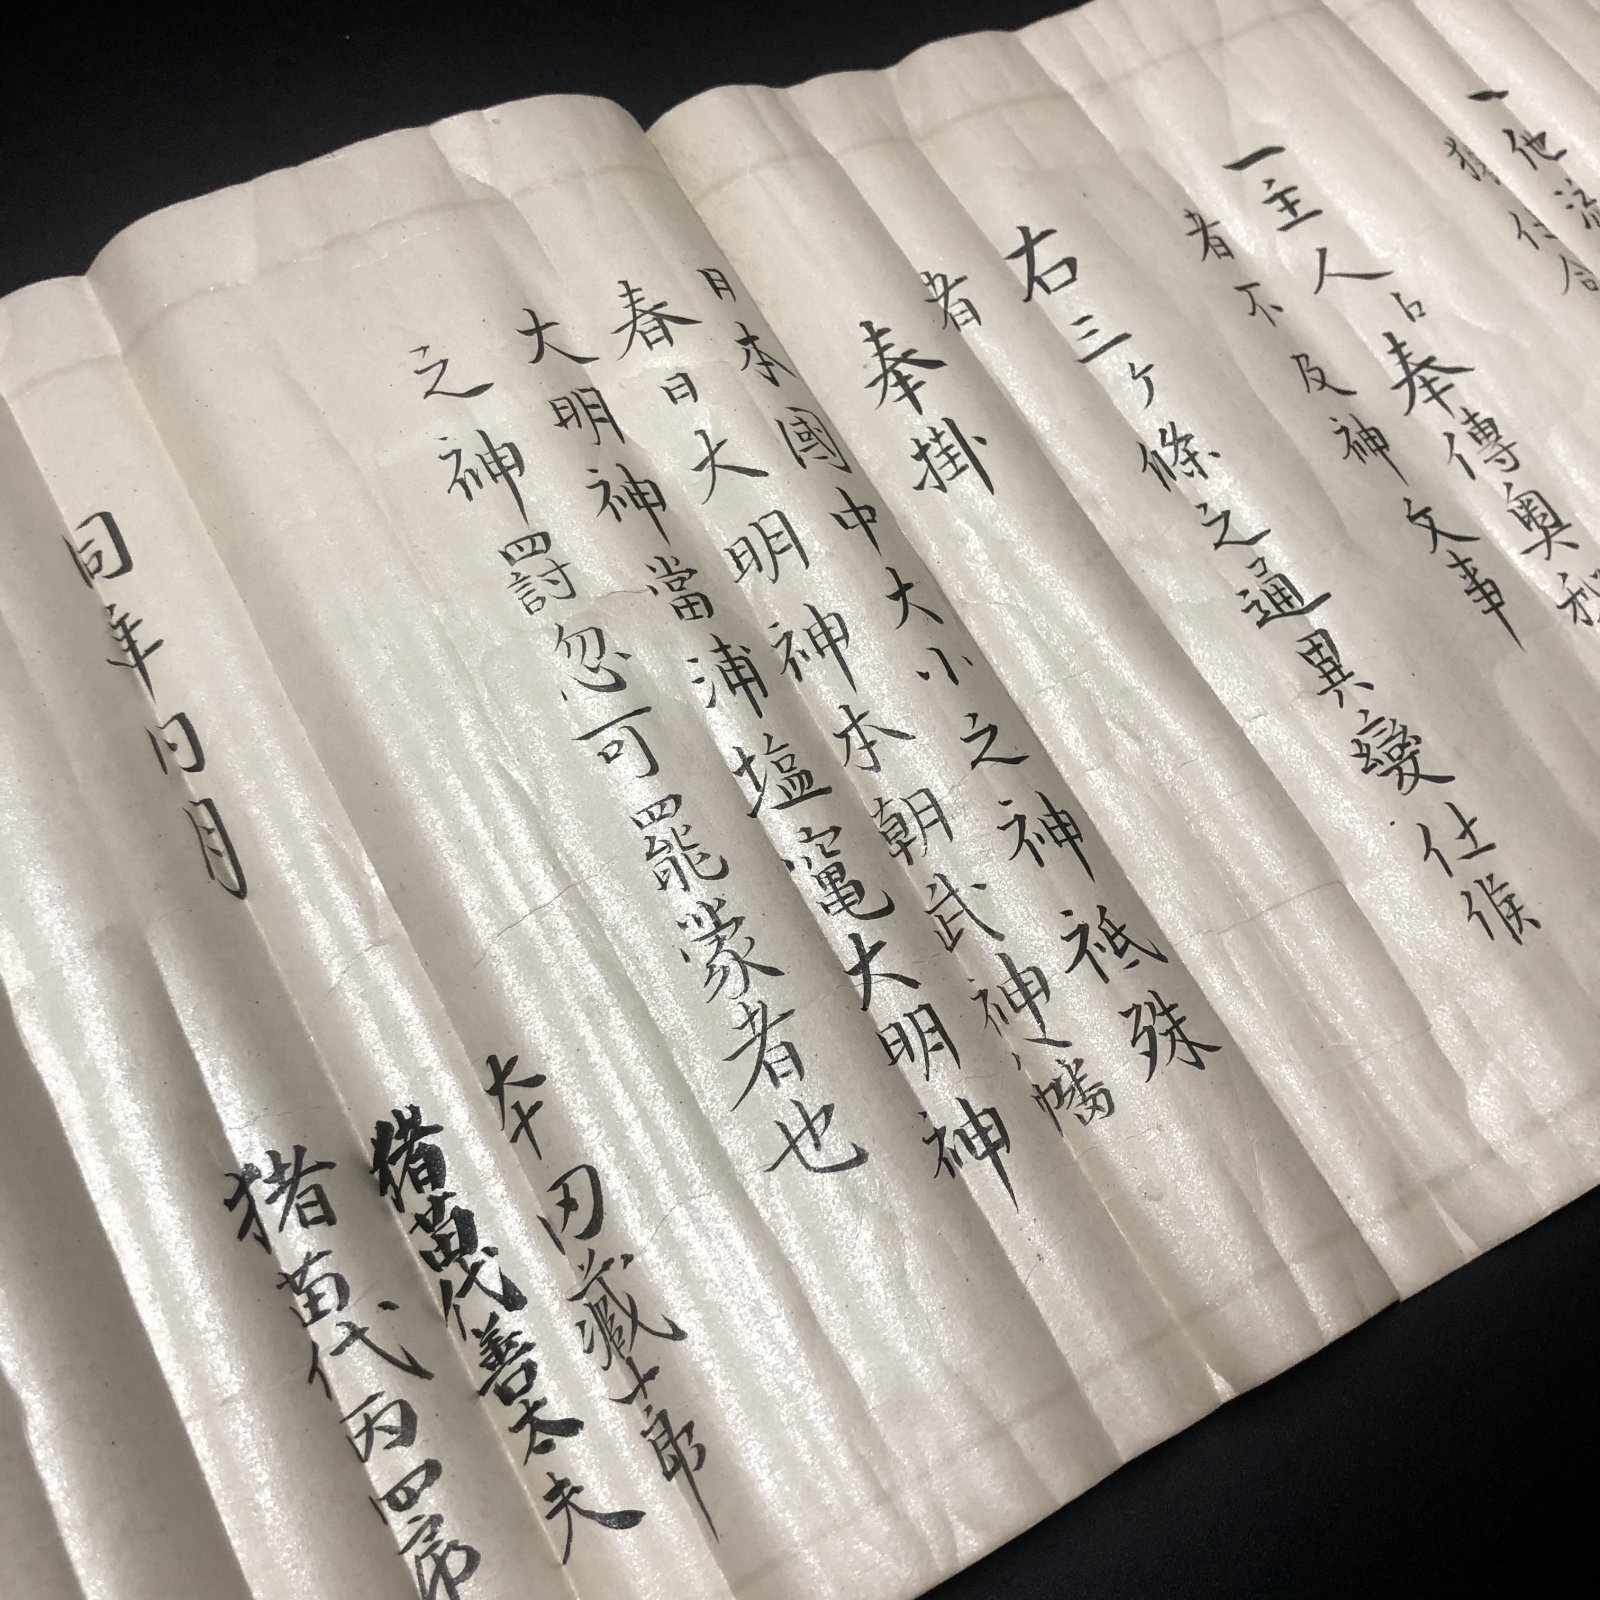 一他流
猥仕合
一主人占奉傳奥秘
者不及神文事
右三ヶ條之通異變仕候
者
奉掛
日本國中大小之神祇殊
春日大明神本朝武神八幡
大明神當浦塩竃大明神
之神罸忽可罷蒙者也
本田藏十郎
猪苗代善太夫
同年同月
猪苗代丙四郎